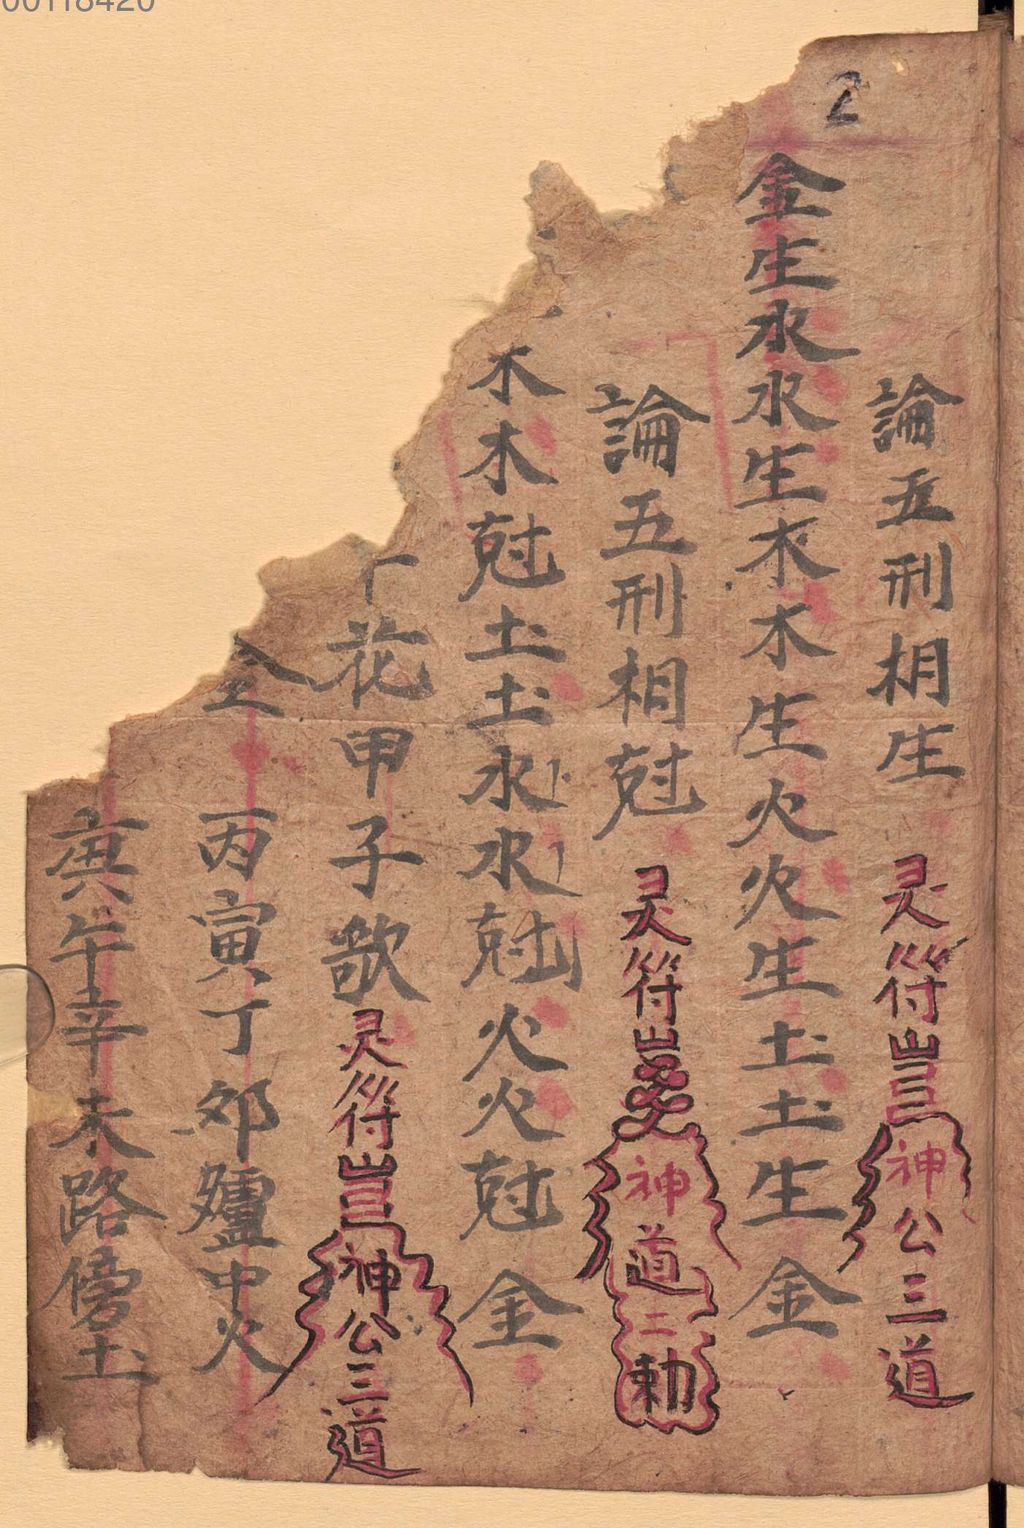 00118420
2
論五刑相生
灵符 神公三道
金生水水生木木生火火生土土生金
論五刑相尅
灵符 神道二勅
木木尅土土水水尅火火尅金
花甲子歌
灵符 神公三道
金 丙寅丁卯爐中火
庚午辛未路傍土